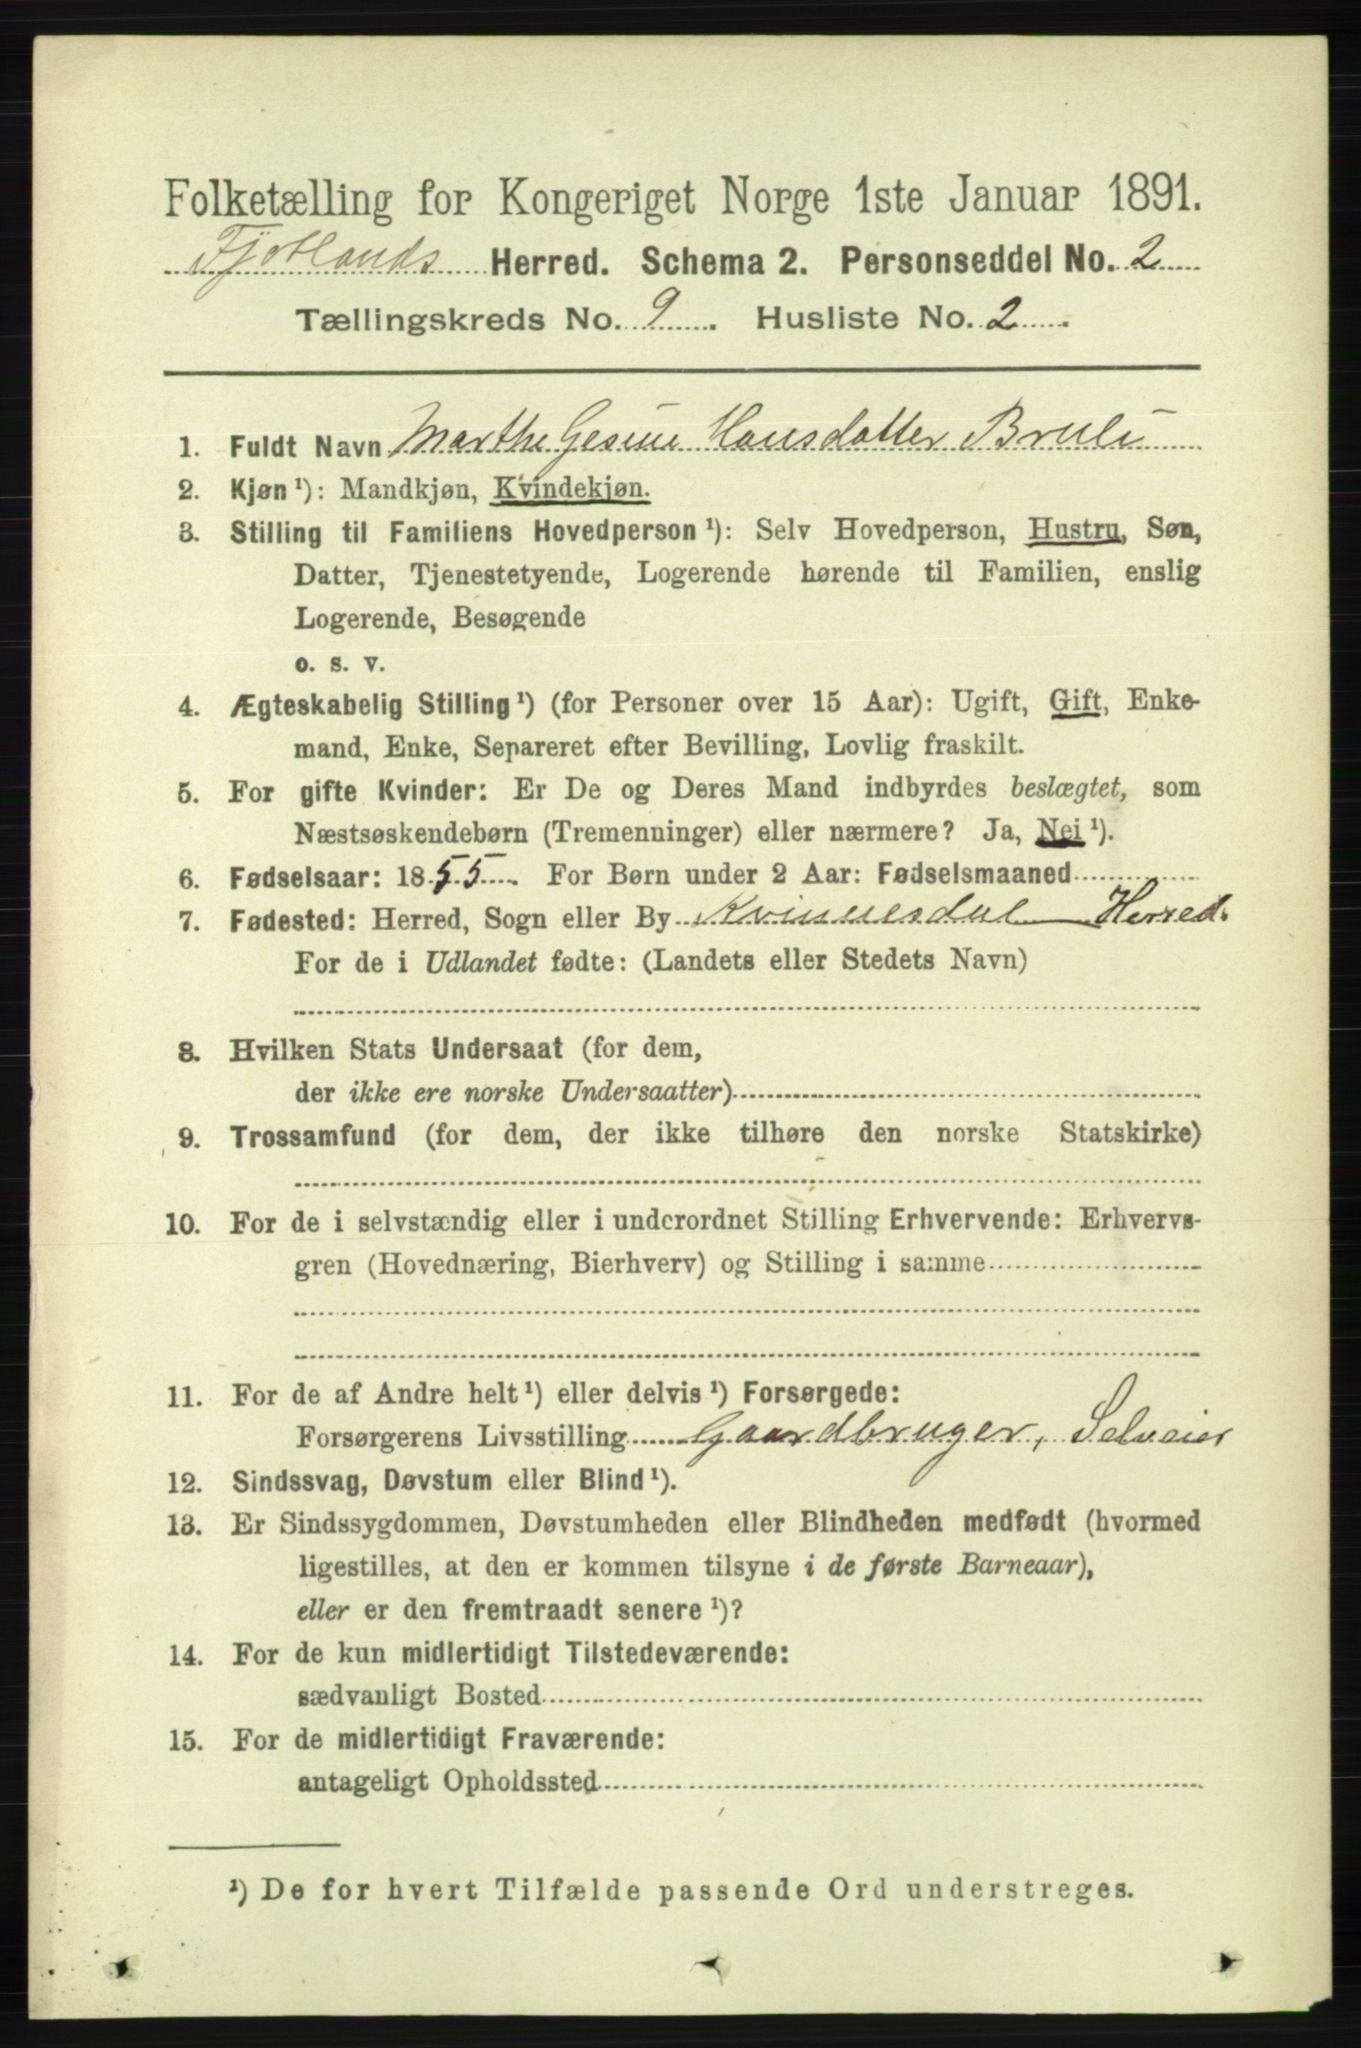 Folketælling for Kongeriget Norge 1ste Januar 1891.
Fjotlands Herred. Schema 2. Personseddel No. 2
Tællingskreds No. 9. Husliste No. 2.
1. Fuldt Navn Marthe Gesine Hansdatter Bruli
2. Kjøn¹): Mandkjøn, Kvindekjøn.
3. Stilling til Familiens Hovedperson¹): Selv Hovedperson, Hustru, Søn,
Datter, Tjenestetyende, Logerende hørende til Familien, enslig
Logerende, Besøgende
o. s. v.
4. Ægteskabelig Stilling¹) (for Personer over 15 Aar): Ugift, Gift, Enke-
mand, Enke, Separeret efter Bevilling, Lovlig fraskilt.
5. For gifte Kvinder: Er De og Deres Mand indbyrdes beslægtet, som
Næstsøskendebørn (Tremenninger) eller nærmere? Ja, Nei¹).
6. Fødselsaar: 1855. For Børn under 2 Aar: Fødselsmaaned
7. Fødested: Herred, Sogn eller By Kvinnesdal Herred.
For de i Udlandet fødte: (Landets eller Stedets Navn)
8. Hvilken Stats Undersaat (for dem,
der ikke ere norske Undersaatter)
9. Trossamfund (for dem, der ikke tilhøre den norske Statskirke)
10. For de i selvstændig eller i underordnet Stilling Erhvervende: Erhvervs-
gren (Hovednæring, Bierhverv) og Stilling i samme
11. For de af Andre helt¹) eller delvis¹) Forsørgede:
Forsørgerens Livsstilling Gaardbruger, Selveier
12. Sindssvag, Døvstum eller Blind¹).
13. Er Sindssygdommen, Døvstumheden eller Blindheden medfødt (hvormed
ligestilles, at den er kommen tilsyne i de første Barneaar),
eller er den fremtraadt senere¹)?
14. For de kun midlertidigt Tilstedeværende:
sædvanligt Bosted
15. For de midlertidigt Fraværende:
antageligt Opholdssted
¹) De for hvert Tilfælde passende Ord understreges.